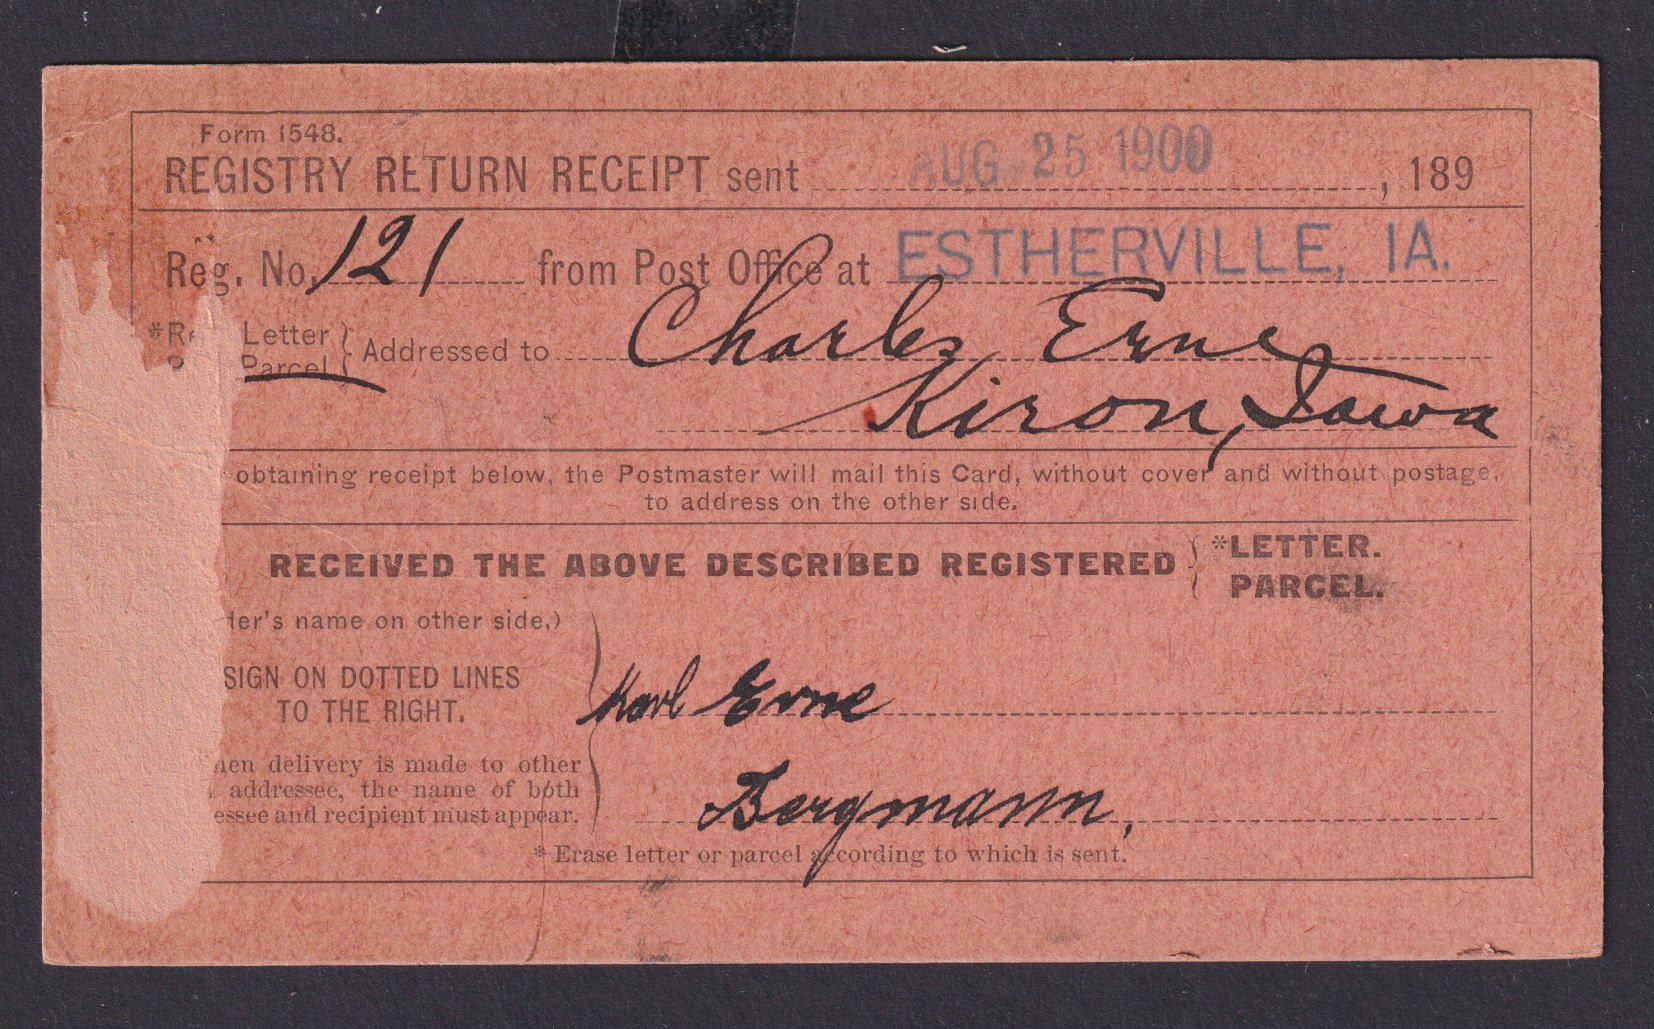 Form 1548.
REGISTRY RETURN RECEIPT sent AUG 25 1900, 189
Reg. No. 121 from Post Office at ESTHERVILLE, IA.
Letter
*Re Parcel } Addressed to Charles Erne
Kiron, Iowa
obtaining receipt below, the Postmaster will mail this Card, without cover and without postage,
to address on the other side.
RECEIVED THE ABOVE DESCRIBED REGISTERED { *LETTER.
PARCEL.
der's name on other side.)
SIGN ON DOTTED LINES
TO THE RIGHT.
Karl Erne
hen delivery is made to other
addressee, the name of both
essee and recipient must appear.
Bergmann,
* Erase letter or parcel according to which is sent.